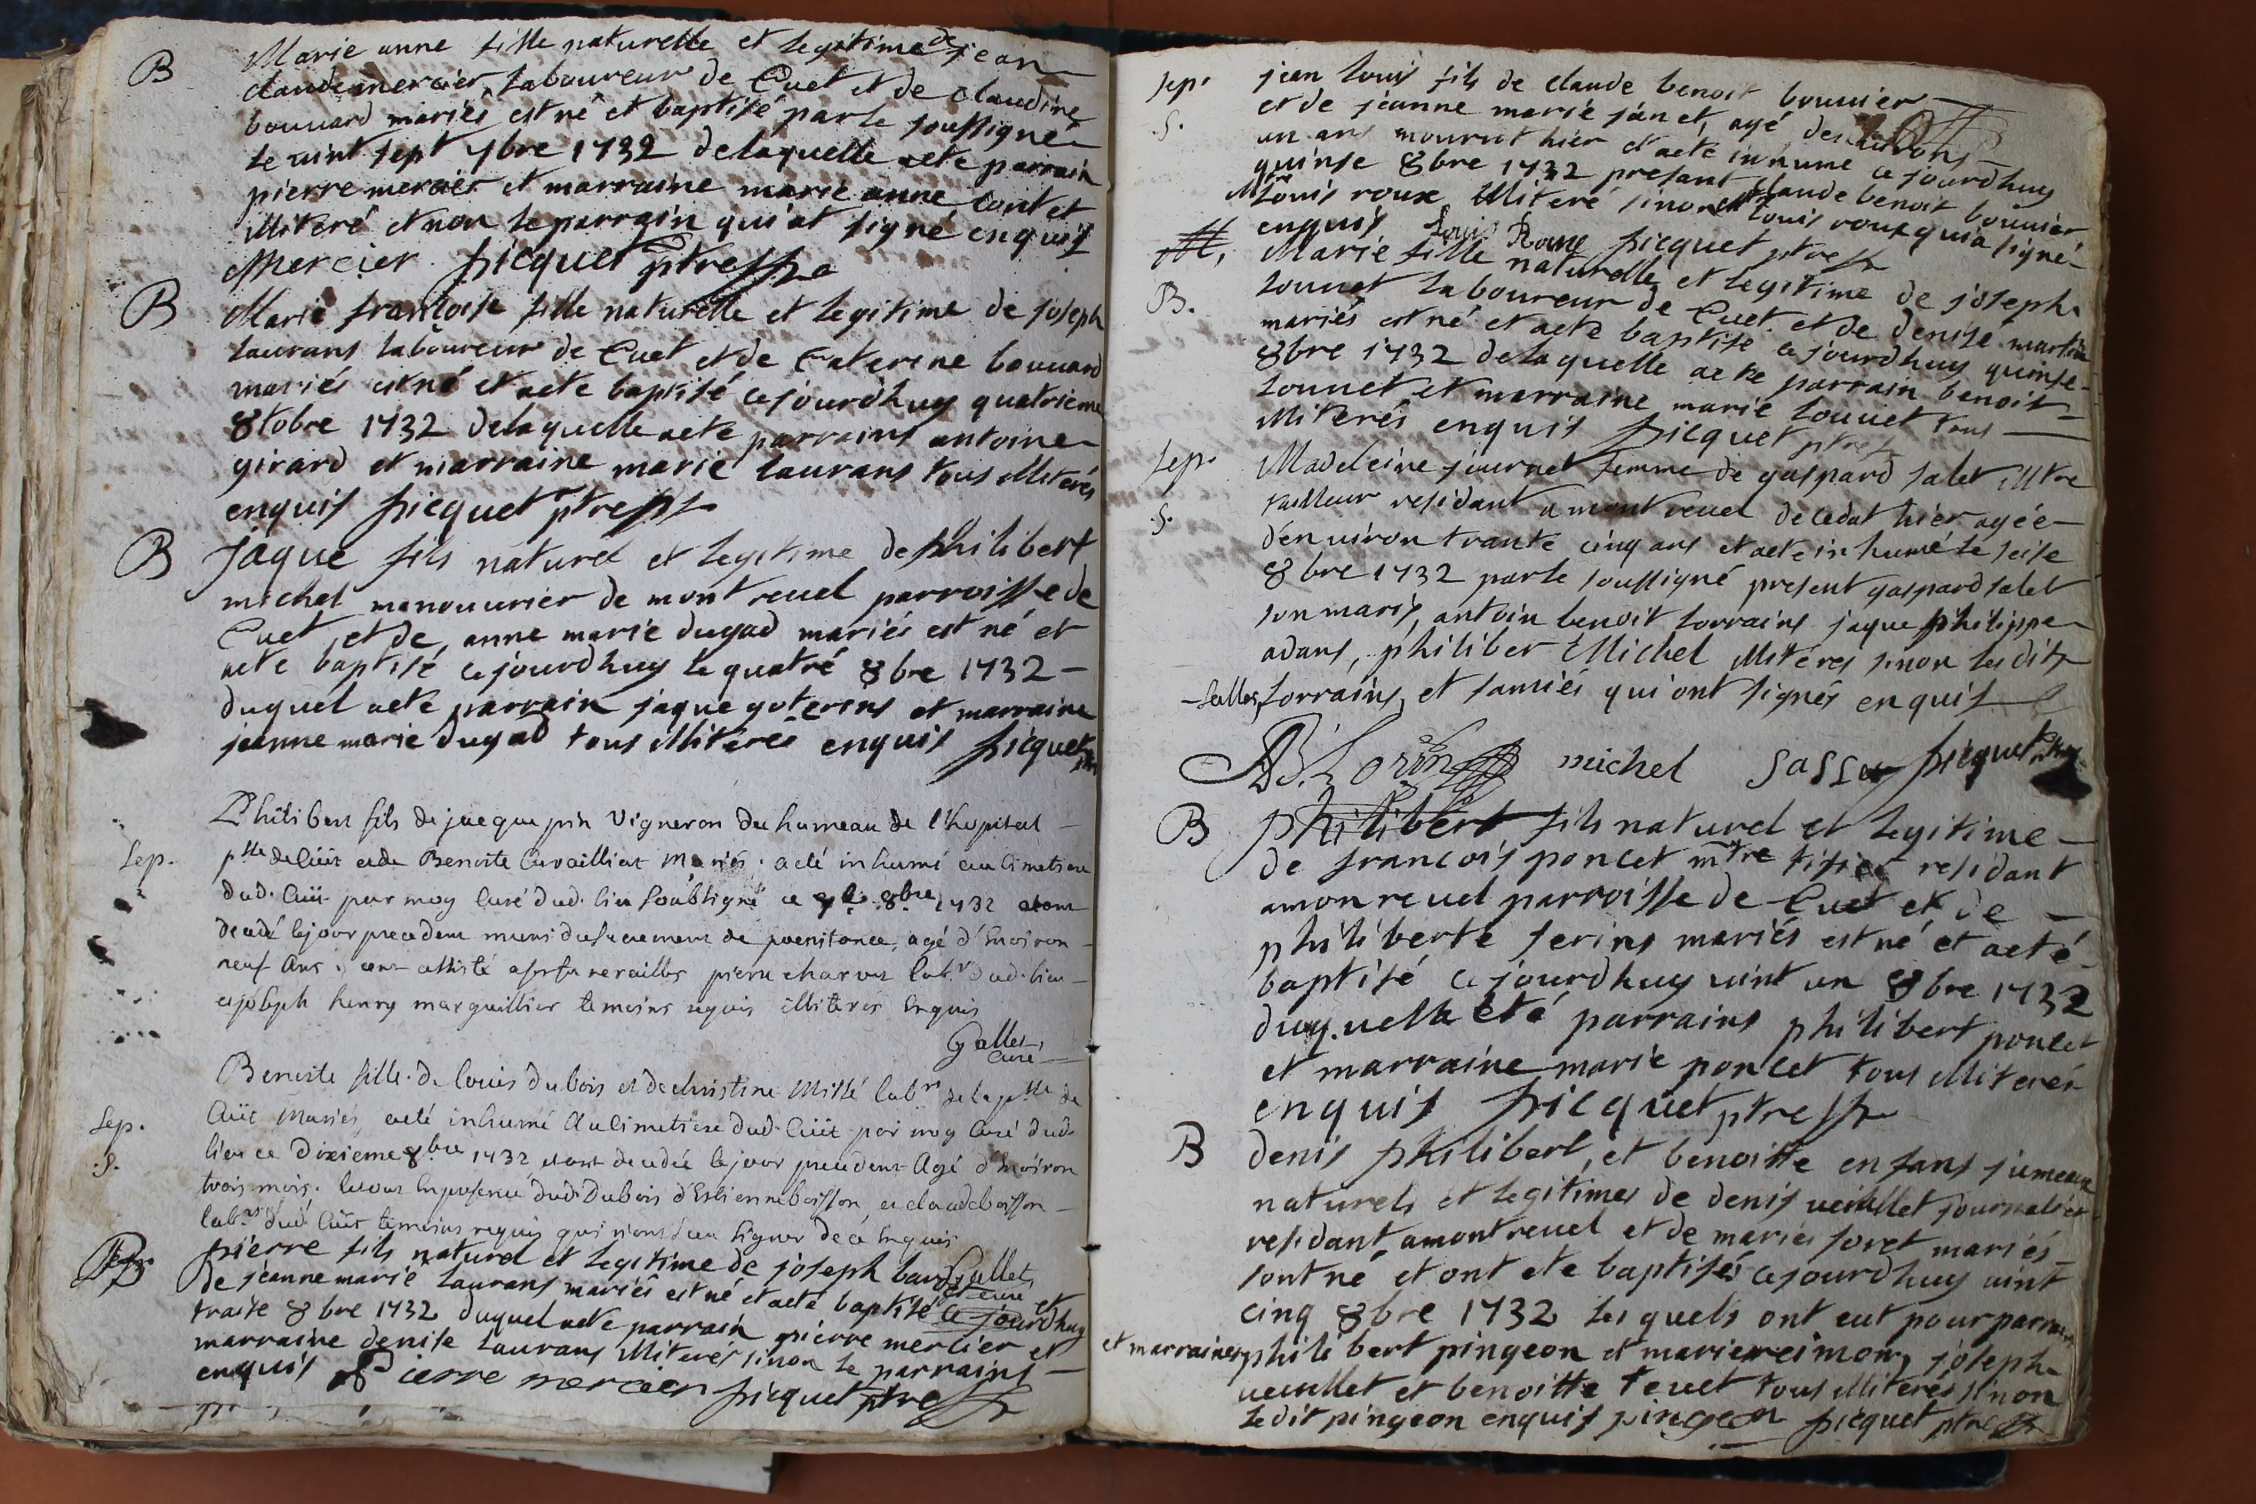 B
Marie anne fille naturelle et legitime de jean
claude mercier, laboureur de Cuet et de claudine
bouuard mariés est né et baptisé par le soussigné
le vint sept 7bre 1732 de laquelle aeté parrain
pierre mercier et marraine marie anne contet
illiteré et non le parrain qui at signé enquis
Mercier picquet ptre
B
Marie francoise fille naturelle et legitime de joseph
laurans laboureur de Cuet et de Caterine bouuard
mariés est né et aeté baptisé ce jourdhuy quatrieme
8tobre 1732 de laquelle aeté parrains antoine
girard et marraine marie laurans tous illiterés
enquis picquet ptre
B
jaque fils naturel et legitime de philibert
michel manouurier de montreuel parroisse de
Cuet, et de anne marie dugad mariés est né et
aeté baptisé ce jourdhuy le quatré 8bre 1732
duquel aeté parrain jaque goterens et marraine
jeanne marie dugad tous illiterés enquis picquet
Philibert fils de jacque pin Vigneron du hameau de l'hopital
Sep.
psse de Cüet et de Benoite Cuvailliat Mariés. a eté inhumé au Cimetiere
dud. Cüet par moy Curé dud. lieu soubsigné ce 8bre 1732 etant
decedé le jour precedent muni du sacrement de poenitence, agé d'Environ
neuf Ans; ont assisté a ses funerailles pierre charvet labr. dud. lieu
et joseph henry marguillier temoins requis illiterés Enquis
Gallet,
Curé
Benoite fille de louis dubois et de christine Millé labrs de la psse de
Sep.
Cüet Mariés, a eté inhumé Au Cimetiere dud. Cüet par moy Curé dud.
.S.
lieu ce Dixieme 8bre 1732, etant decedée le jour precedent Agé d'Environ
trois mois. le tout En presence dud. Dubois d'Estienne boisson et claude boisson
labrs dud. Cüet temoins requis qui n'ont sceu signer de ce Enquis
Gallet,
Curé
B
pierre fils naturel et legitime de joseph baud et
de jeanne marie laurans mariés est né et aeté baptisé ce jourdhuy
traise 8bre 1732 duquel aeté parrain pierre mercier et
marraine denise laurans illiterés sinon le parrains
enquis Pierre mercier picquet ptre
Sep.
jean louis fils de claude benoit bouuier
.S.
et de jeanne marie janet, agé denuirons
un ans mourrut hier et aeté inhumé ce jourdhuy
quinse 8bre 1732 presant claude benoit bouuier
louis roux illiteré sinon louis roux qui a signé
enquis Louis Roux picquet ptre
B.
Marie fille naturelle et legitime de joseph
louuet laboureur de Cuet et de denise martin
mariés est né et aeté baptisé ce jourdhuy quinse
8bre 1732 de laquelle aeté parrain benoit
louuet et marraine marie louuet tous
illiterés enquis picquet ptre
Sep.
Madeleine journet femme de gaspard salet
.S.
tailleur residant a montreuel decedat hier agée
d'enuiron trante cinq ans et aeté inhumé le seise
8bre 1732 par le soussigné present gaspard salet
son maris, antoin benoit lorrains jaque philippe
adans, philiber Michel illiterés sinon les dits
salles, lorrains, et qui ont signés enquis
AB Lorin michel picquet ptre
B
philibert fils naturel et legitime
de francois poncet mtre tisier residant
a monreuel parroisse de Cuet et de
philiberte serins mariés est né et aeté
baptisé ce jourdhuy vint un 8bre 1732
duquel aeté parrains philibert poncet
et marraine marie poncet tous illiterés
enquis picquet ptre
B
denis philibert, et benoitte enfans jumeaux
naturels et legitimes de denis ueuillet journalier
residant a montreuel et de maries soret mariés
sont né et ont eté baptisés ce jourdhuy vint
cinq 8bre 1732 les quels ont eut pour parrains
et marraines philibert pingeon et marie reimon, joseph
ueuillet et benoitte teuet tous illiterés sinon
ledit pingeon enquis pingeon picquet ptre